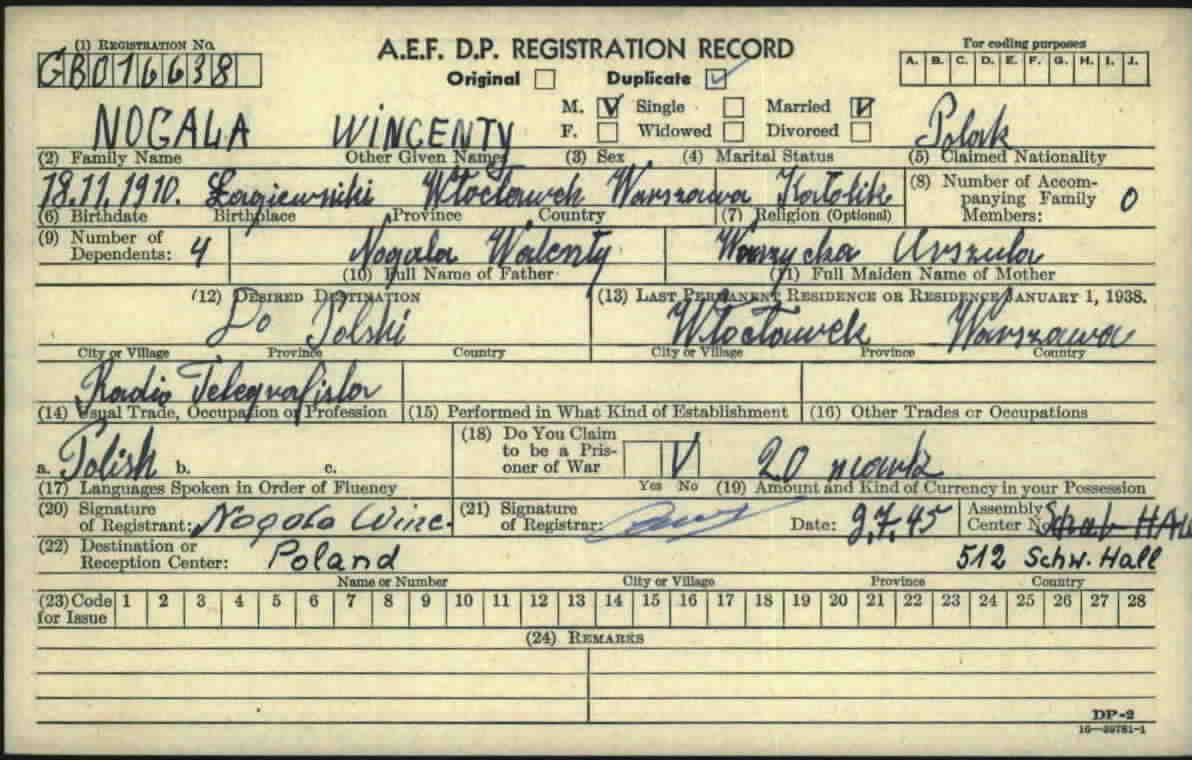 (1) REGISTRATION No.
A.E.F. D.P. REGISTRATION RECORD
For coding purposes
GB016638
A. B. C. D. E. F. G. H. I. J.
Original Duplicate
M. V Single Married V
NOGALA WINCENTY Polak
F. Widowed Divorced
(2) Family Name Other Given Names (3) Sex (4) Marital Status (5) Claimed Nationality
18.11.1910. Łagiewniki Włocławek Warszawa Katolik
(8) Number of Accompanying Family Members: 0
(6) Birthdate Birthplace Province Country (7) Religion (Optional)
(9) Number of Dependents: 4
Nogala Walenty Urszula
(10) Full Name of Father (11) Full Maiden Name of Mother
(12) DESIRED DESTINATION (13) LAST PERMANENT RESIDENCE OR RESIDENCE JANUARY 1, 1938.
Do Polski Włocławek Warszawa
City or Village Province Country City or Village Province Country
Radio Telegrafista
(14) Usual Trade, Occupation or Profession (15) Performed in What Kind of Establishment (16) Other Trades or Occupations
a. Polish b. c.
(18) Do You Claim to be a Prisoner of War V
20 mark
Yes No
(17) Languages Spoken in Order of Fluency (19) Amount and Kind of Currency in your Possession
(20) Signature of Registrant: Nogala Winc.
(21) Signature of Registrar:
Date: 9.7.45
Assembly Center No.
(22) Destination or Reception Center: Poland
512 Schw. Hall
Name or Number City or Village Province Country
(23) Code for Issue 1 2 3 4 5 6 7 8 9 10 11 12 13 14 15 16 17 18 19 20 21 22 23 24 25 26 27 28
(24) REMARKS
DP-2
16—39781-1